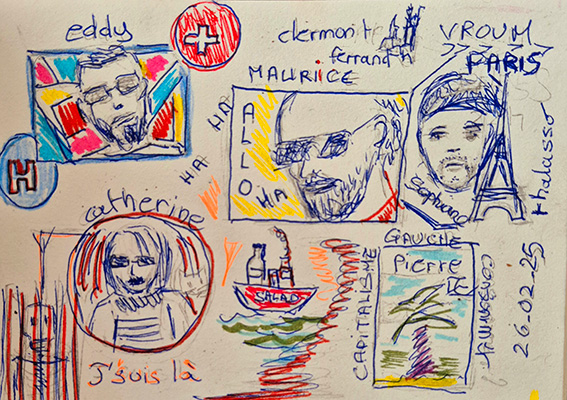 eddy
clermont
ferrand
VROUM
PARIS
MAURICE
HA
HA
ALLO
HA
stéphane
thalasso
H
catherine
SALAD
CAPITALISME
GAUCHE
Pierre
26-02-25
J'suis là